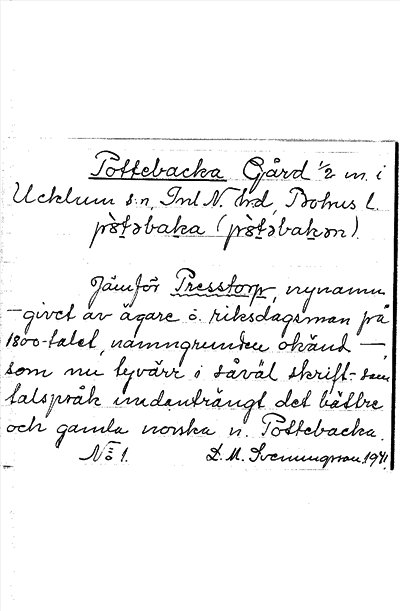 Pottebacka Gård 1/2 m. i
Ucklum s:n, Inl N. hd, Bohus l.
pòt̯əbaka (pòt̯əbakən).
Jämför Presstorp, nynamn
- givet av ägare o. riksdagsman på
1800-talet, namngrunden okänd —,
som nu tyvärr i såväl skrift- som
talspråk undanträngt det bättre
och gamla norska n. Pottebacka.
No 1. D. M. Svenningsson 1941.